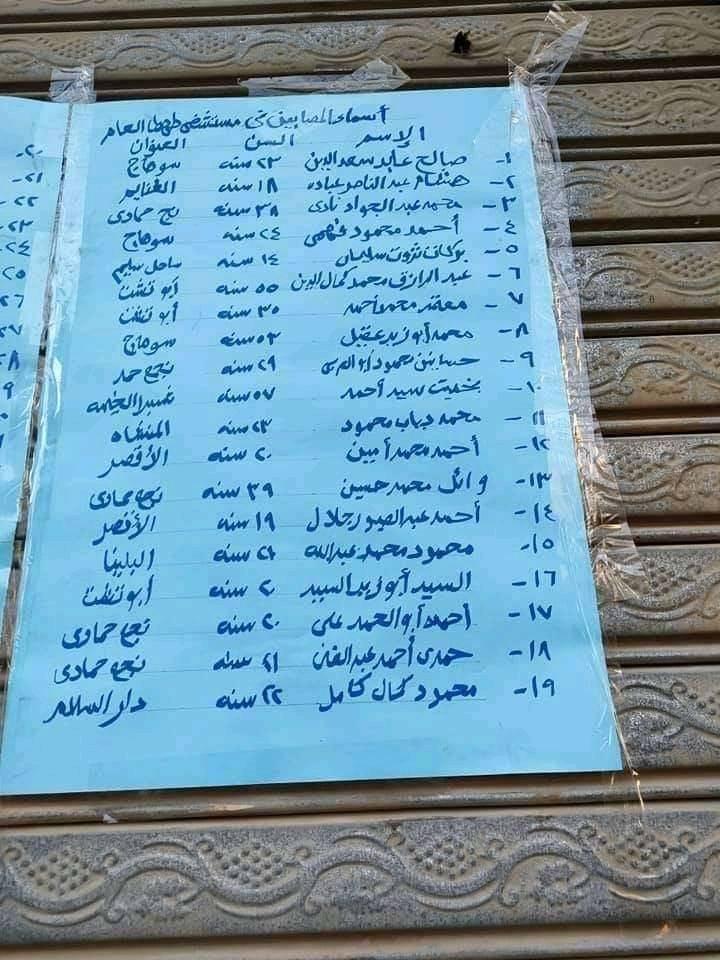 أسماء المصابين في مستشفى طهطا العام
الإسم السن العنوان
١- صالح عابد سعد الدين ٢٣ سنه سوهاج
٢- هشام عبد الناصر عباده ١٨ سنه
٣- محمد عبد الجواد نادى ٣٨ سنه نجع حمادى
٤- أحمد محمود فهمى ٢٤ سنه سوهاج
٥- ثروت سليمان ١٤ سنه ساحل سليم
٦- عبد الرازق محمد كمال الدين ٥٥ سنه أبو تشت
٧- معتز محمد أحمد ٣٥ سنه أبو تشت
٨- محمد أبو زيد عقيل ٥٣ سنه سوهاج
٩- محمود ٢٩ سنه نجع حمد
١٠- بخيت سيد أحمد ٥٧ سنه
١١- محمد دياب محمود ٢٣ سنه المنشاه
١٢- أحمد محمد أمين ٢٠ سنه الأقصر
١٣- وائل محمد حسين ٣٩ سنه نجع حمادى
١٤- أحمد عبد الصبور جلال ١٩ سنه الأقصر
١٥- محمود محمد عبدالله ٢١ سنه البلينا
١٦- السيد أبو زيد السيد ٢٠ سنه أبو تشت
١٧- أحمد أبو الحمد على ٢٠ سنه نجع حمادى
١٨- حمدى أحمد عبد الغنى ٢١ سنه نجع حمادى
١٩- محمود كمال كامل ٢٢ سنه دار السلام
٢٠-
٢١-
٢٢-
٢٣-
٢٤
٢٥
٢٦
٢٧